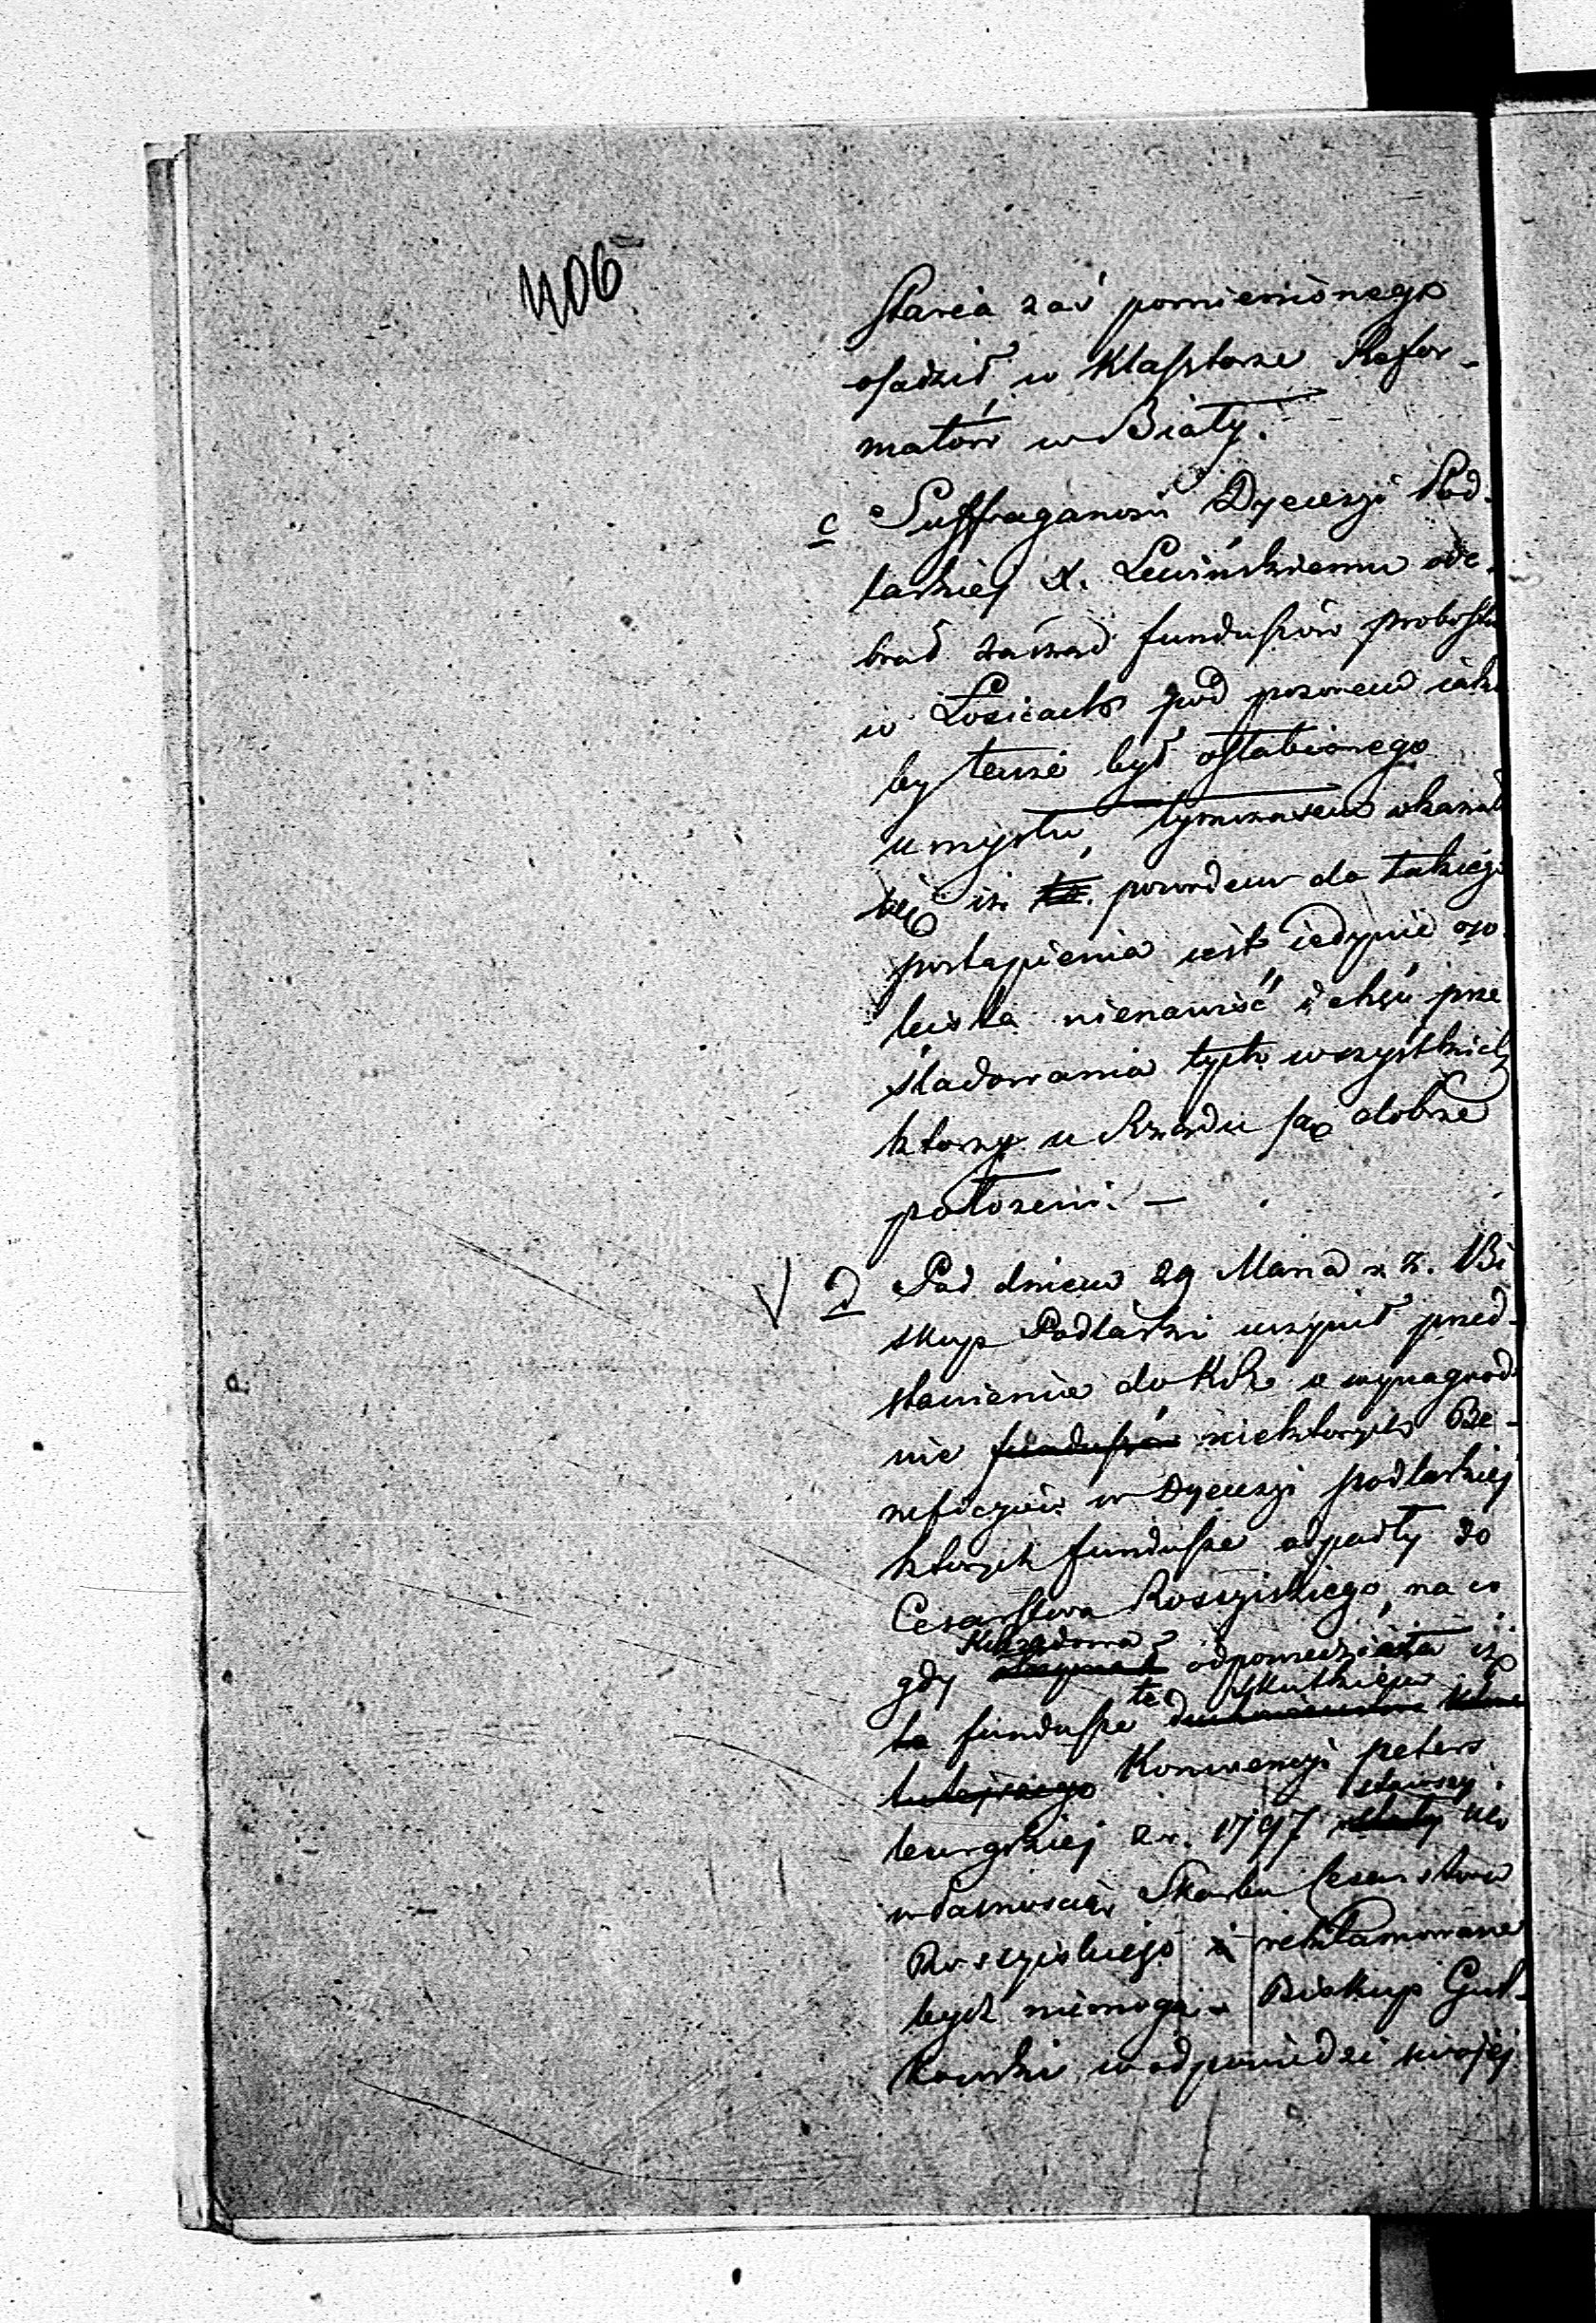 406
starca zaś pomienionego
osadził w Klasztorze Refor-
matów w Biały.
c Suffraganowi Dyecezyi Pod-
laskiej X. Lewińskiemu ode-
brał zarząd funduszów probostw
w Łosicach pod pozorem iako
by tenże był osłabionego
umysłu, tymczasem okazało
się iż powodem do takiego
postąpienia iest iedynie oso-
bista nienawiść i chęć prze
śladowania tych wszystkich
ktorzy u Rządu są dobrze
położeni. —
d Pod dniem 29 Marca r. z. Bi
skup Podlaski uczynił przed-
stawienie do KR o wynagrodze
nie funduszów niektorych Be-
neficyów w Dyecezyi podlaskiej
ktorych fundusze odpadły do
Cesarstwa Rossyiskiego, na co
gdy odpowiedziała iż
te fundusze te skutkiem
tutejszego Konwencyi peters
burgskiej z r. 1797 stawszy się
własnością Skarbu Cesarstwa
Rossyiskiego reklamowane
bydź niemogą. Biskup Gut-
kowski w odpowiedzi swojej